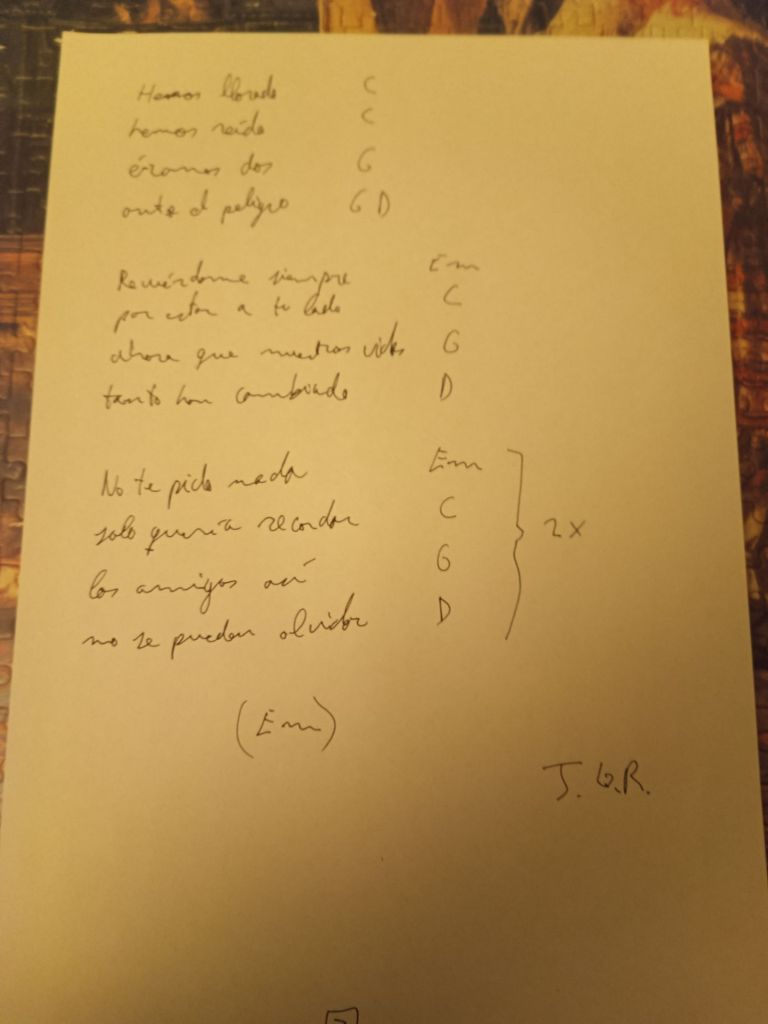 Hemos llorado C
hemos reído C
éramos dos G
ante el peligro G D
Recuérdame siempre Em
por estar a tu lado C
ahora que nuestras vidas G
tanto han cambiado D
No te pido nada Em
solo quería recordar C
los amigos así G
no se pueden olvidar D
} 2x
(Em)
J. G.R.